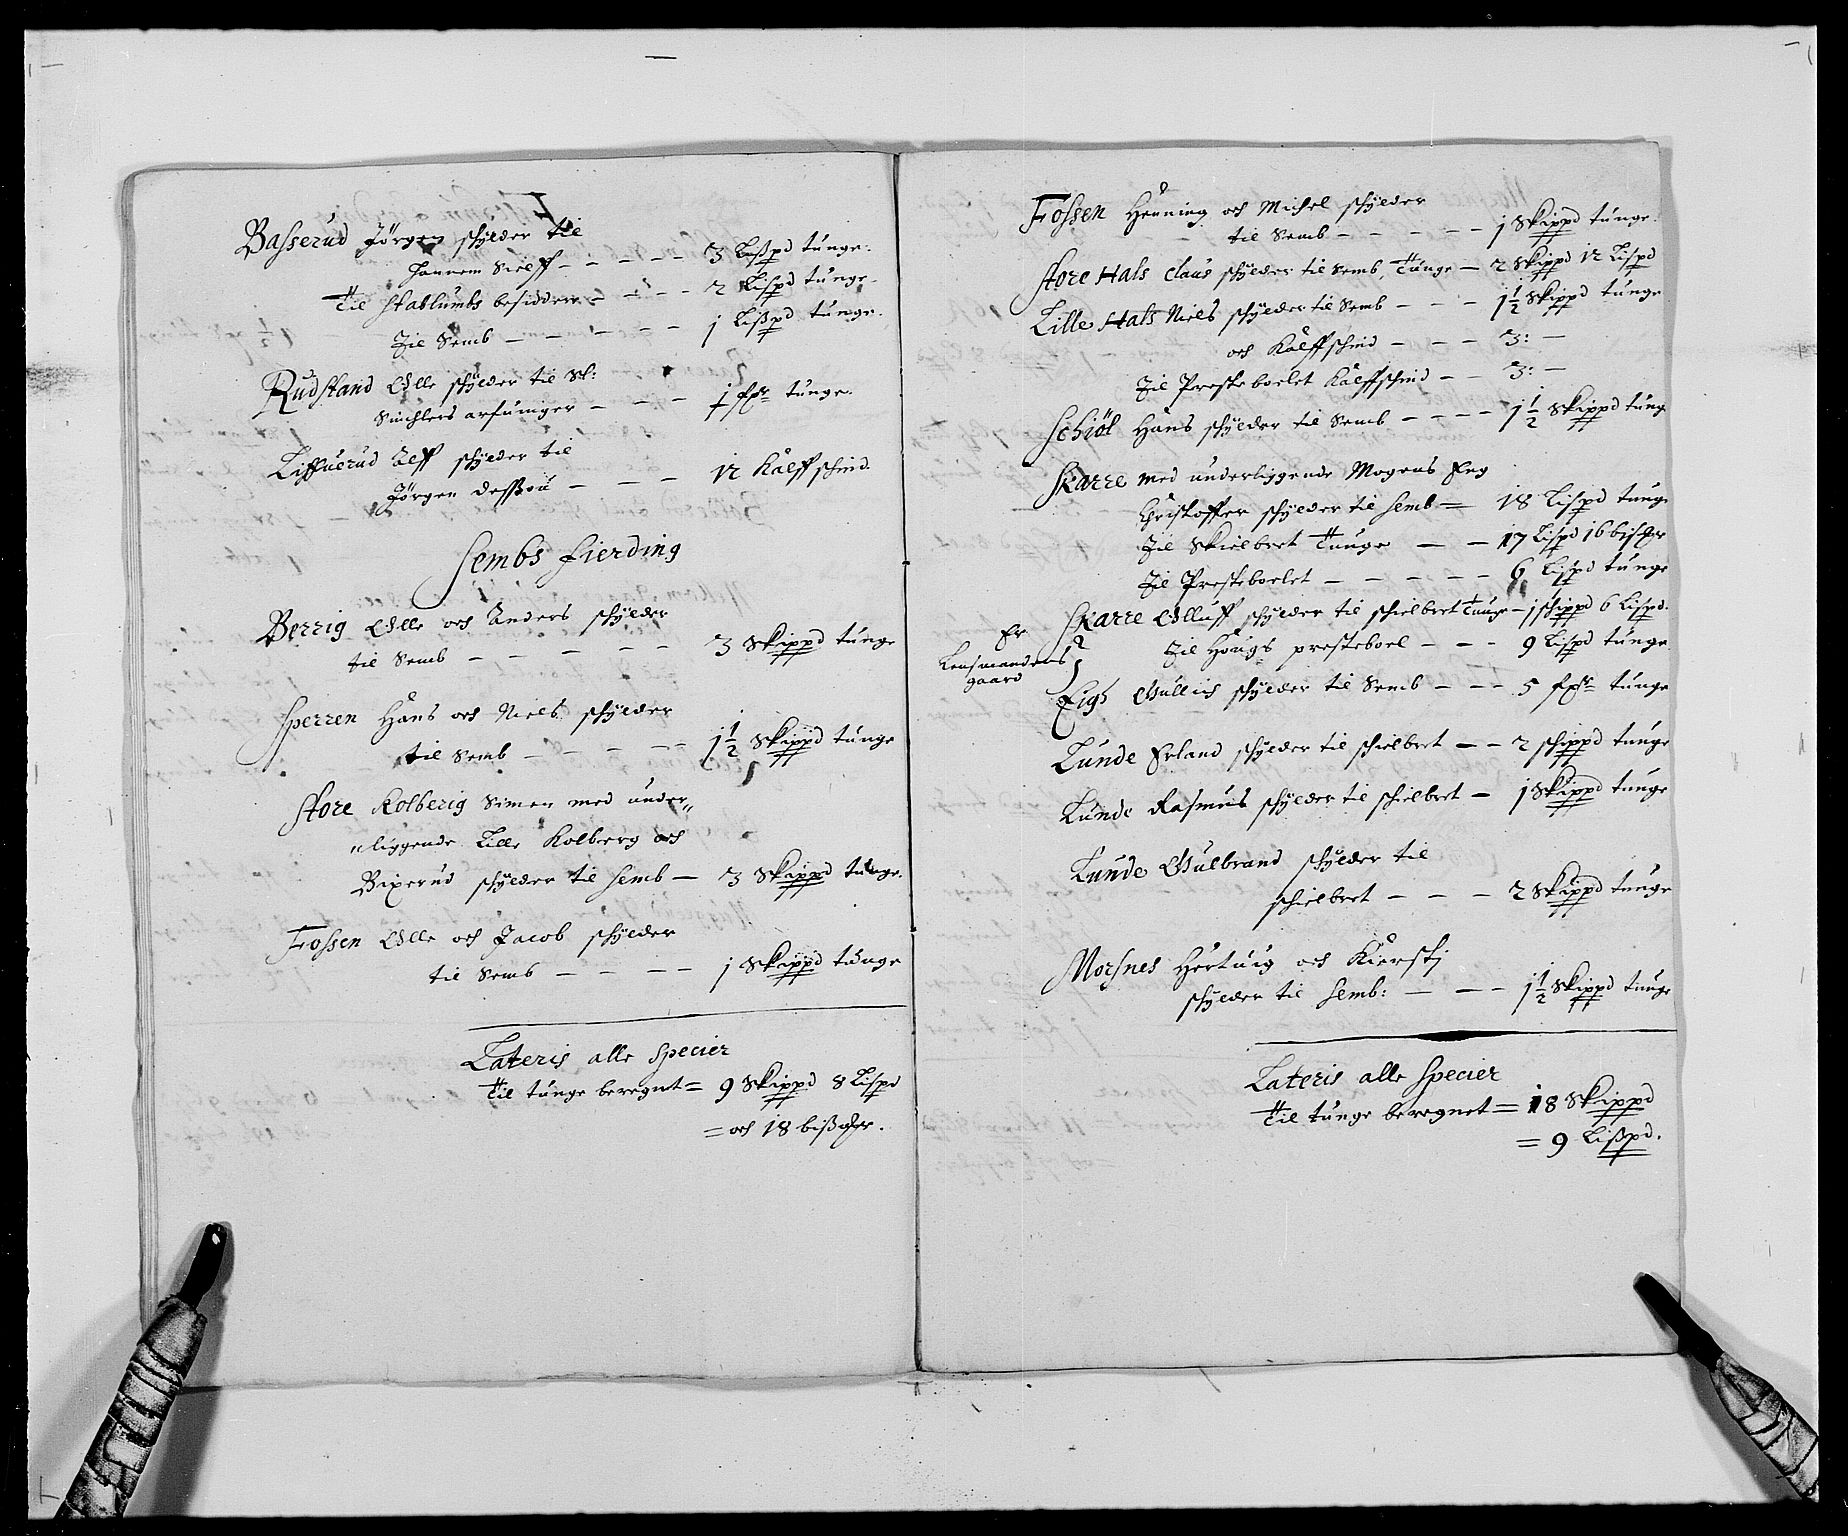 Basserud Jörgen schÿlder til
hannem Sielff - - - - - 3 Lißpd tunge.
Til Stablumbs besidder - - - 2 Lispd tunge.
Til Semb - - - - - 1 Lißpd tunge.
Rudstand Olle schÿlder til Sl:
Sinchlers arfuinger - - - 1 fr tunge.
Liffuerud Alff schÿlder til
Jörgen - - - 12 Kalffschind.
Sembs Fierding
Berrig Olle och Anders schÿlder
til Semb - - - - - 3 Skippd tunge
Sperren Hans och Niels schÿlder
til Semb - - - - - 1½ Skippd tunge
Store Kolberig Simen med under„
„liggende Lille Kolberg och
Bixerud schÿlder til Semb — 3 Skippd tunge.
Fossen Olle och Jacob schÿlder
til Semb - - - - 1 Skippd tunge
Lateris alle Specier
Til tunge beregnt = 9 Skippd 8 Lispd
= och 18 bißmr.
Fossen Henning och Michel schÿlder
til Semb - - - - - 1 Skippd tunge.
Store Hals Claus schÿlder til Semb, Tunge — 2 Skippd 12 Lispd
Lille Hals Niels schÿlder til Semb - - - 1½ Skippd tunge
och Kalffschind - - - 3: —
Til Presteboelet Kalffschind - - 3: —
Schiöl Hans schÿlder til Semb - - - - 1½ Skippd tung
Skarre med underliggende Mogens Eng
Christoffer schÿlder til Semb = 18 Lispd tunge
Til Skielbret Tunge - - 17 Lispd 16 bismr
Til Presteboelet - - - - - 6 Lispd tunge
Skarre Olluff schÿlder til schielbret Tunge — 1 schippd 6 Lispd.
Er
Lensmandens
gaard
Til Hougs presteboel - - - 9 Lispd tunge.
Eigs Gullich schÿlder til Semb - - - 5 fr tunge
Lunde Erland schÿlder til schielbret - - 2 schippd tunge
Lunde Rasmus schÿlder til schielbret — 1 Skippd tunge
Lunde Gulbrand schÿlder til
schielbret - - - - 2 Skippd tunge
Morsnes Hertuig och Kiersti
schÿlder til Semb: - - - 1½ Skippd tunge
Lateris alle Specier
Til tunge beregnet = 18 Skippd
= 9 Lißpd.